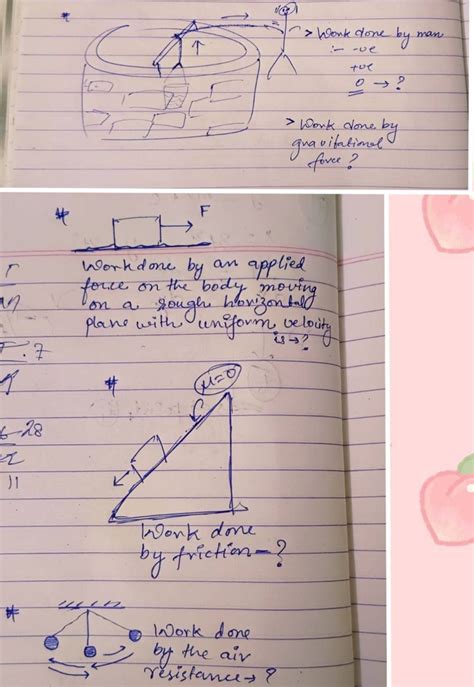 *
> Work done by man
:- -ve
+ve
0 → ?
> Work done by
gravitational
force?
#
F
Work done by an applied
force on the body moving
on a rough horizontal
plane with uniform velocity
is → ?
7
28
11
#
μ=0
Work done
by friction - ?
#
Work done
by the air
resistance → ?